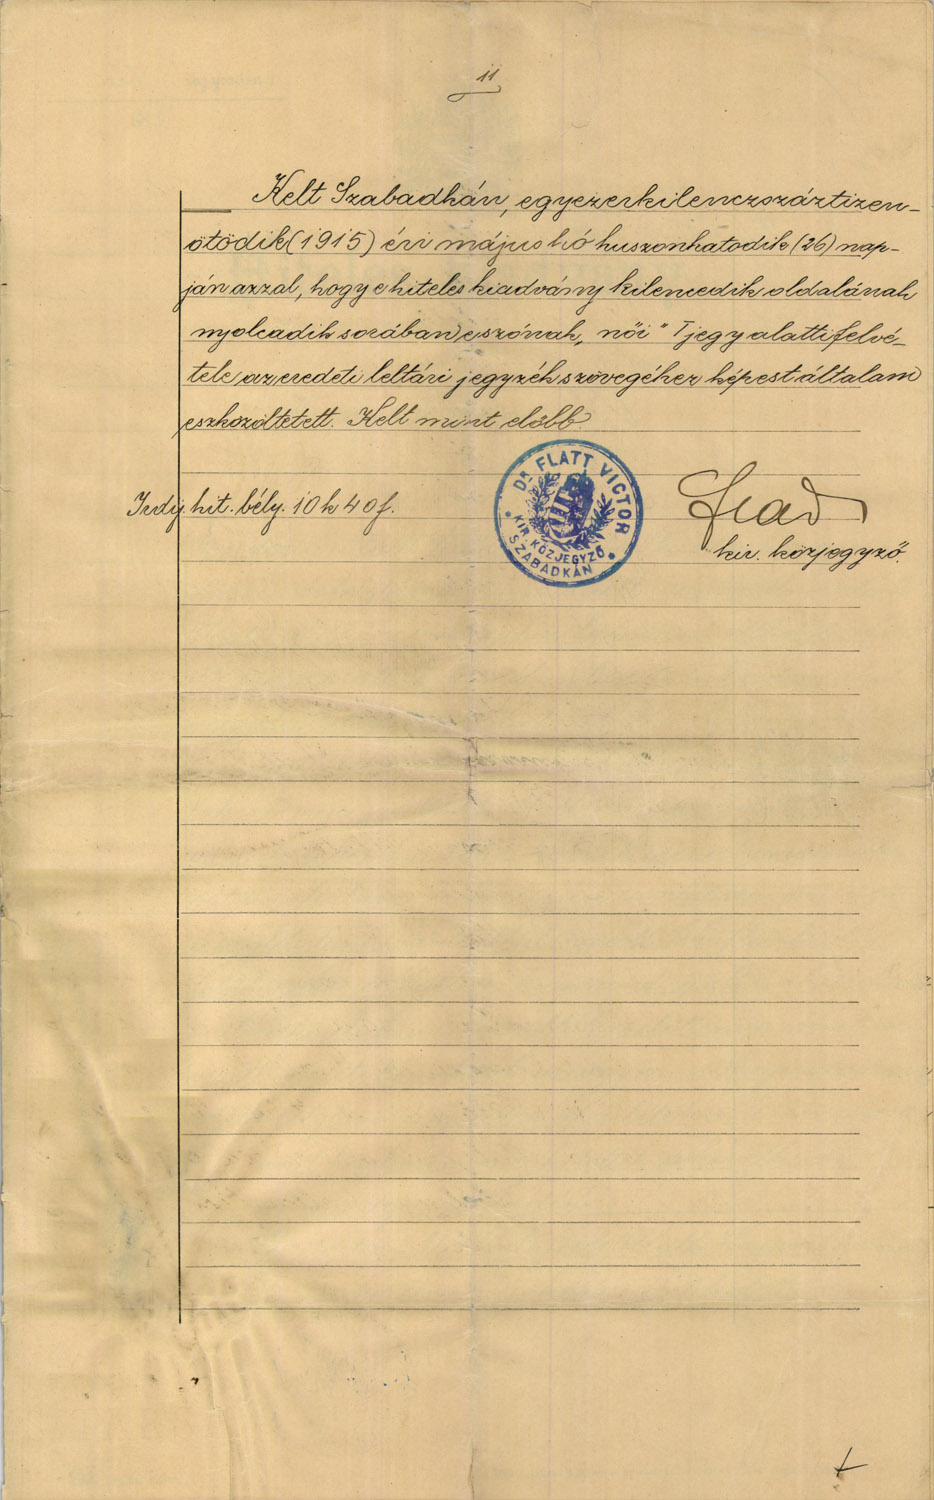 11
Kelt Szabadkán, egyezerkilenczszáztizen-
ötödik (1915) évi május hó huszonhatodik (26) nap-
ján azzal, hogy e hiteles kiadvány kilencedik oldalának
nyolcadik sorában e szónak „női" jegy alatti felvé-
tele az eredeti leltári jegyzék szövegéhez képest általam
eszközöltetett. Kelt mint előbb.
hit. bély. 10 k 40 f.
Dr FLATT VICTOR
KIR. KÖZJEGYZŐ
SZABADKÁN
kir. közjegyző.